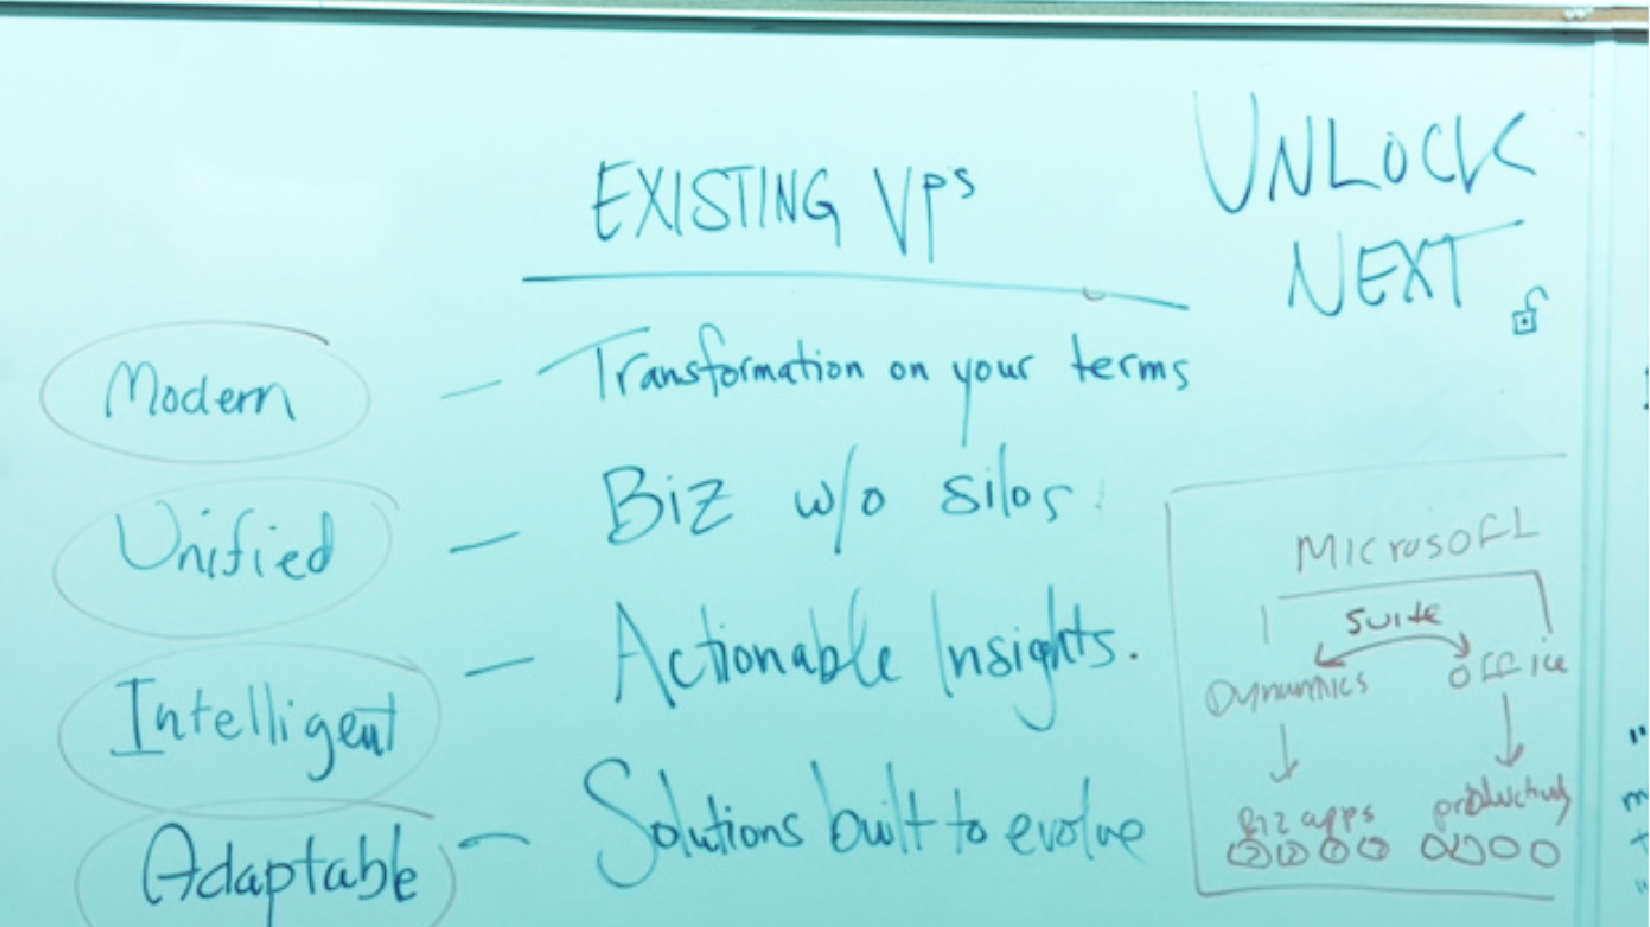 UNLOCK
NEXT
EXISTING VPs
Modern — Transformation on your terms
Unified — Biz w/o silos
Intelligent — Actionable Insights.
Adaptable — Solutions built to evolve
Microsoft
Suite
Dynamics Office
Biz apps productivity